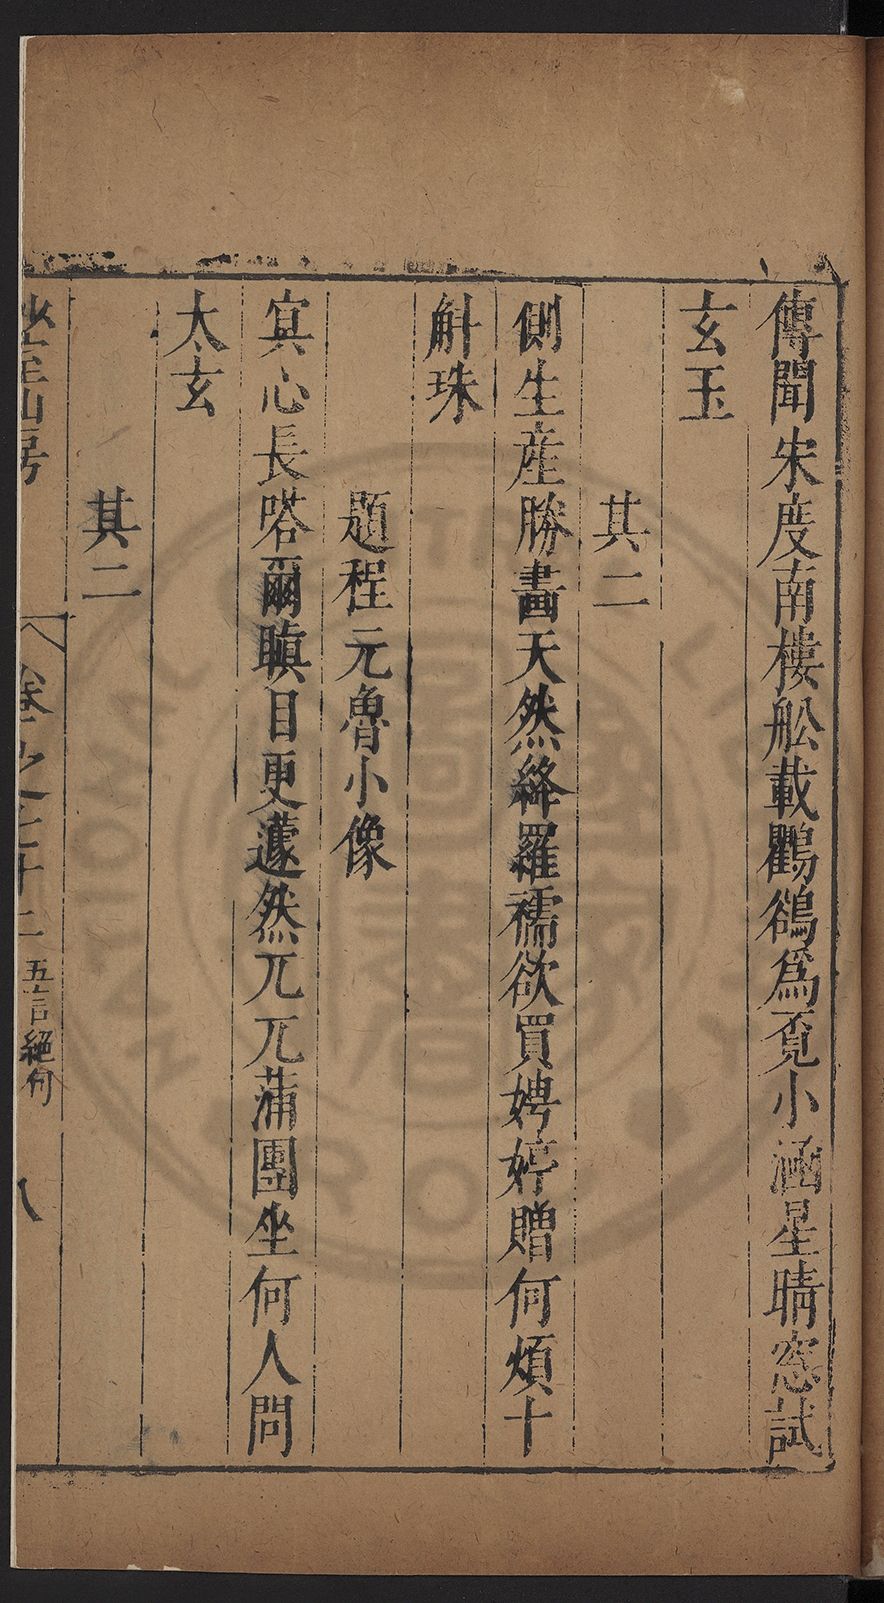 傳聞宋度南樓舩載鸜鵒爲覔小涵星晴窓試
玄玉
其二
側生産勝畫天然絳羅襦欲買娉婷贈何煩十
斛珠
題程元魯小像
冥心長嗒爾瞋目更蘧然兀兀蒲團坐何人問
太玄
其二
山房
卷之 十二 五言絕句 八